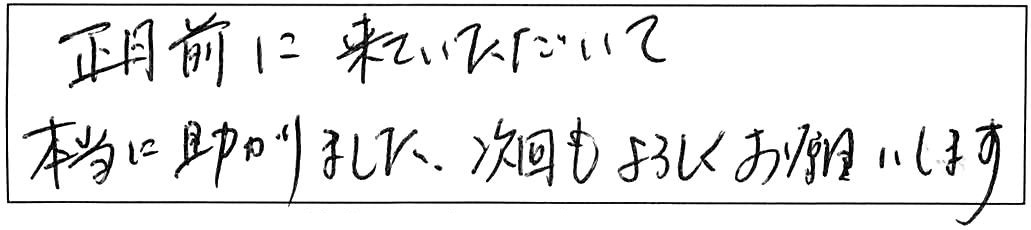 正月前に来ていただいて
本当に助かりました、次回もよろしくお願いします